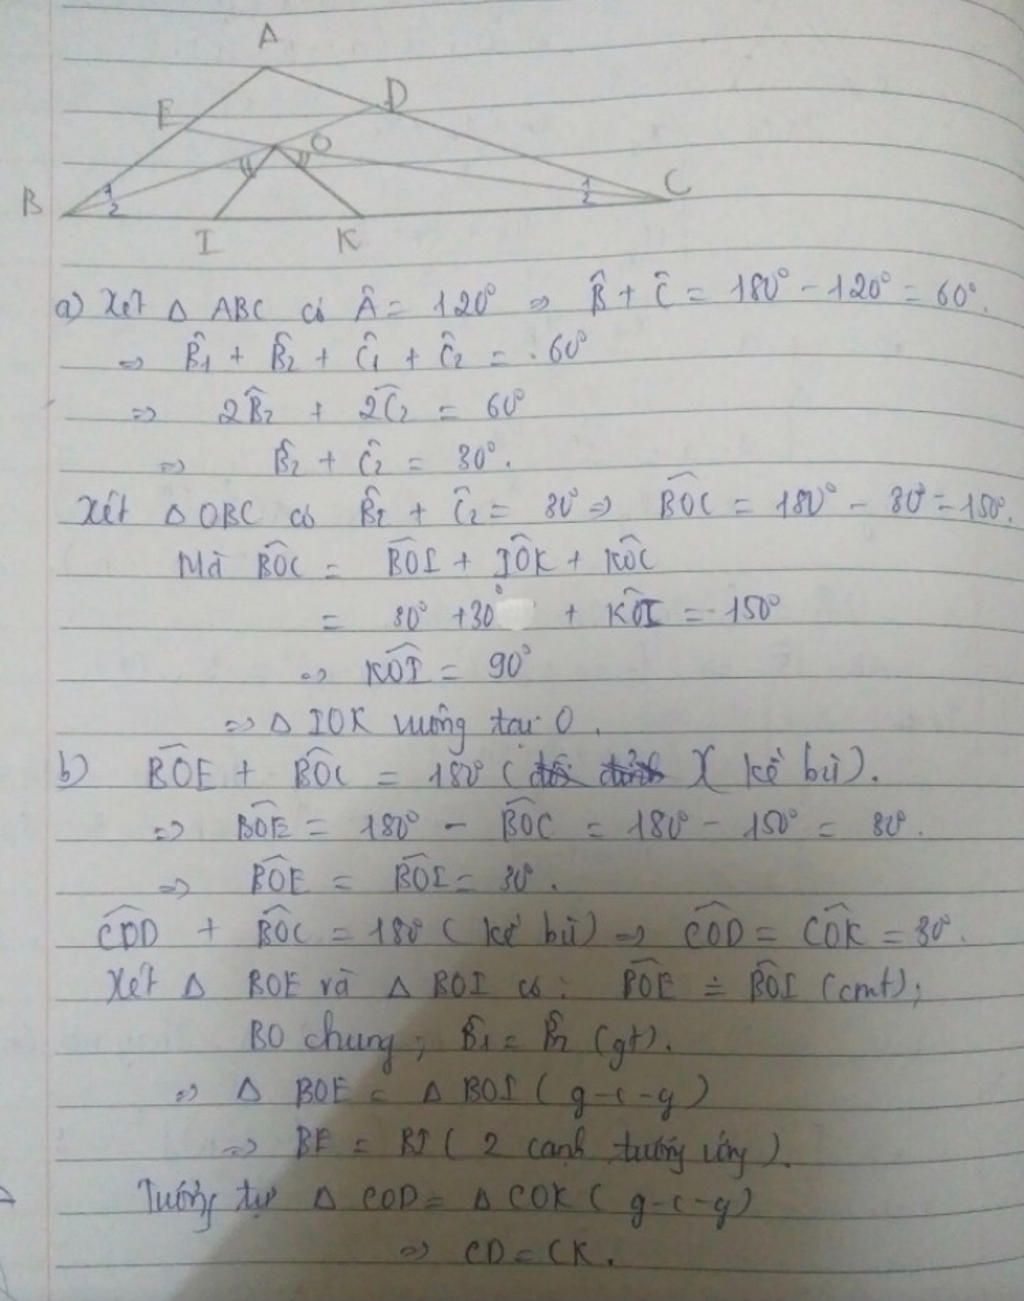 A
E D
O
B 1 2 1 2 C
I K
a) Xét Δ ABC có Â = 120° => B̂ + Ĉ = 180° - 120° = 60°.
=> B̂₁ + B̂₂ + Ĉ₁ + Ĉ₂ = 60°
=> 2B̂₂ + 2Ĉ₂ = 60°
=> B̂₂ + Ĉ₂ = 30°.
Xét Δ OBC có B̂₂ + Ĉ₂ = 30° => B̂OC = 180° - 30° = 150°.
Mà B̂OC = B̂OI + ÎOK + K̂OC
= 30° + 30° + K̂OI = 150°
=> K̂OI = 90°
=> Δ IOK vuông tại O.
b) B̂OE + B̂OC = 180° ( kề bù).
=> B̂OE = 180° - B̂OC = 180° - 150° = 30°.
=> B̂OE = B̂OI = 30°.
ĈOD + B̂OC = 180° ( kề bù) => ĈOD = ĈOK = 30°.
Xét Δ BOE và Δ BOI có: B̂OE = B̂OI (cmt);
BO chung; B̂₁ = B̂₂ (gt).
=> Δ BOE = Δ BOI ( g-c-g)
=> BE = BI ( 2 cạnh tương ứng).
Tương tự Δ COD = Δ COK ( g-c-g)
=> CD = CK.